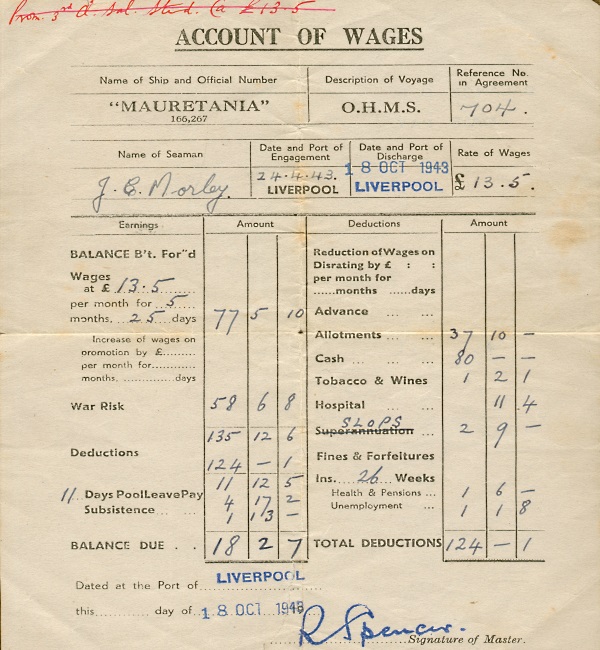 Prom. 3rd
£13-5
ACCOUNT OF WAGES
Name of Ship and Official Number Description of Voyage Reference No. in Agreement
"MAURETANIA" O.H.M.S. 704.
166,267
Name of Seaman Date and Port of Engagement Date and Port of Discharge Rate of Wages
J. C. Morley. 24.4.43. LIVERPOOL 18 OCT 1943 LIVERPOOL £ 13.5.
Earnings Amount Deductions Amount
BALANCE B't. For"d
Reduction of Wages on
Disrating by £ : :
per month for
......months ......days
Wages
at £ 13.5
per month for 5
months. 25 days 77 5 10
Advance ... ...
Increase of wages on
promotion by £.........
per month for............
months. .............days
Allotments ... 37 10 -
Cash ... ... 80 - -
Tobacco & Wines 1 2 1
War Risk 58 6 8
Hospital ... ... 11 4
135 12 6
SLOPS
Superannuation ... 2 9 -
Deductions
124 - 1
Fines & Forfeitures
11 12 5
Ins. 26 Weeks
11 Days Pool Leave Pay 4 17 2
Health & Pensions ... 1 6 -
Subsistence ... 1 13 -
Unemployment ... 1 1 8
BALANCE DUE . . 18 2 7 TOTAL DEDUCTIONS 124 - 1
Dated at the Port of LIVERPOOL
this............ day of 18 OCT 1943
R Spencer. Signature of Master.